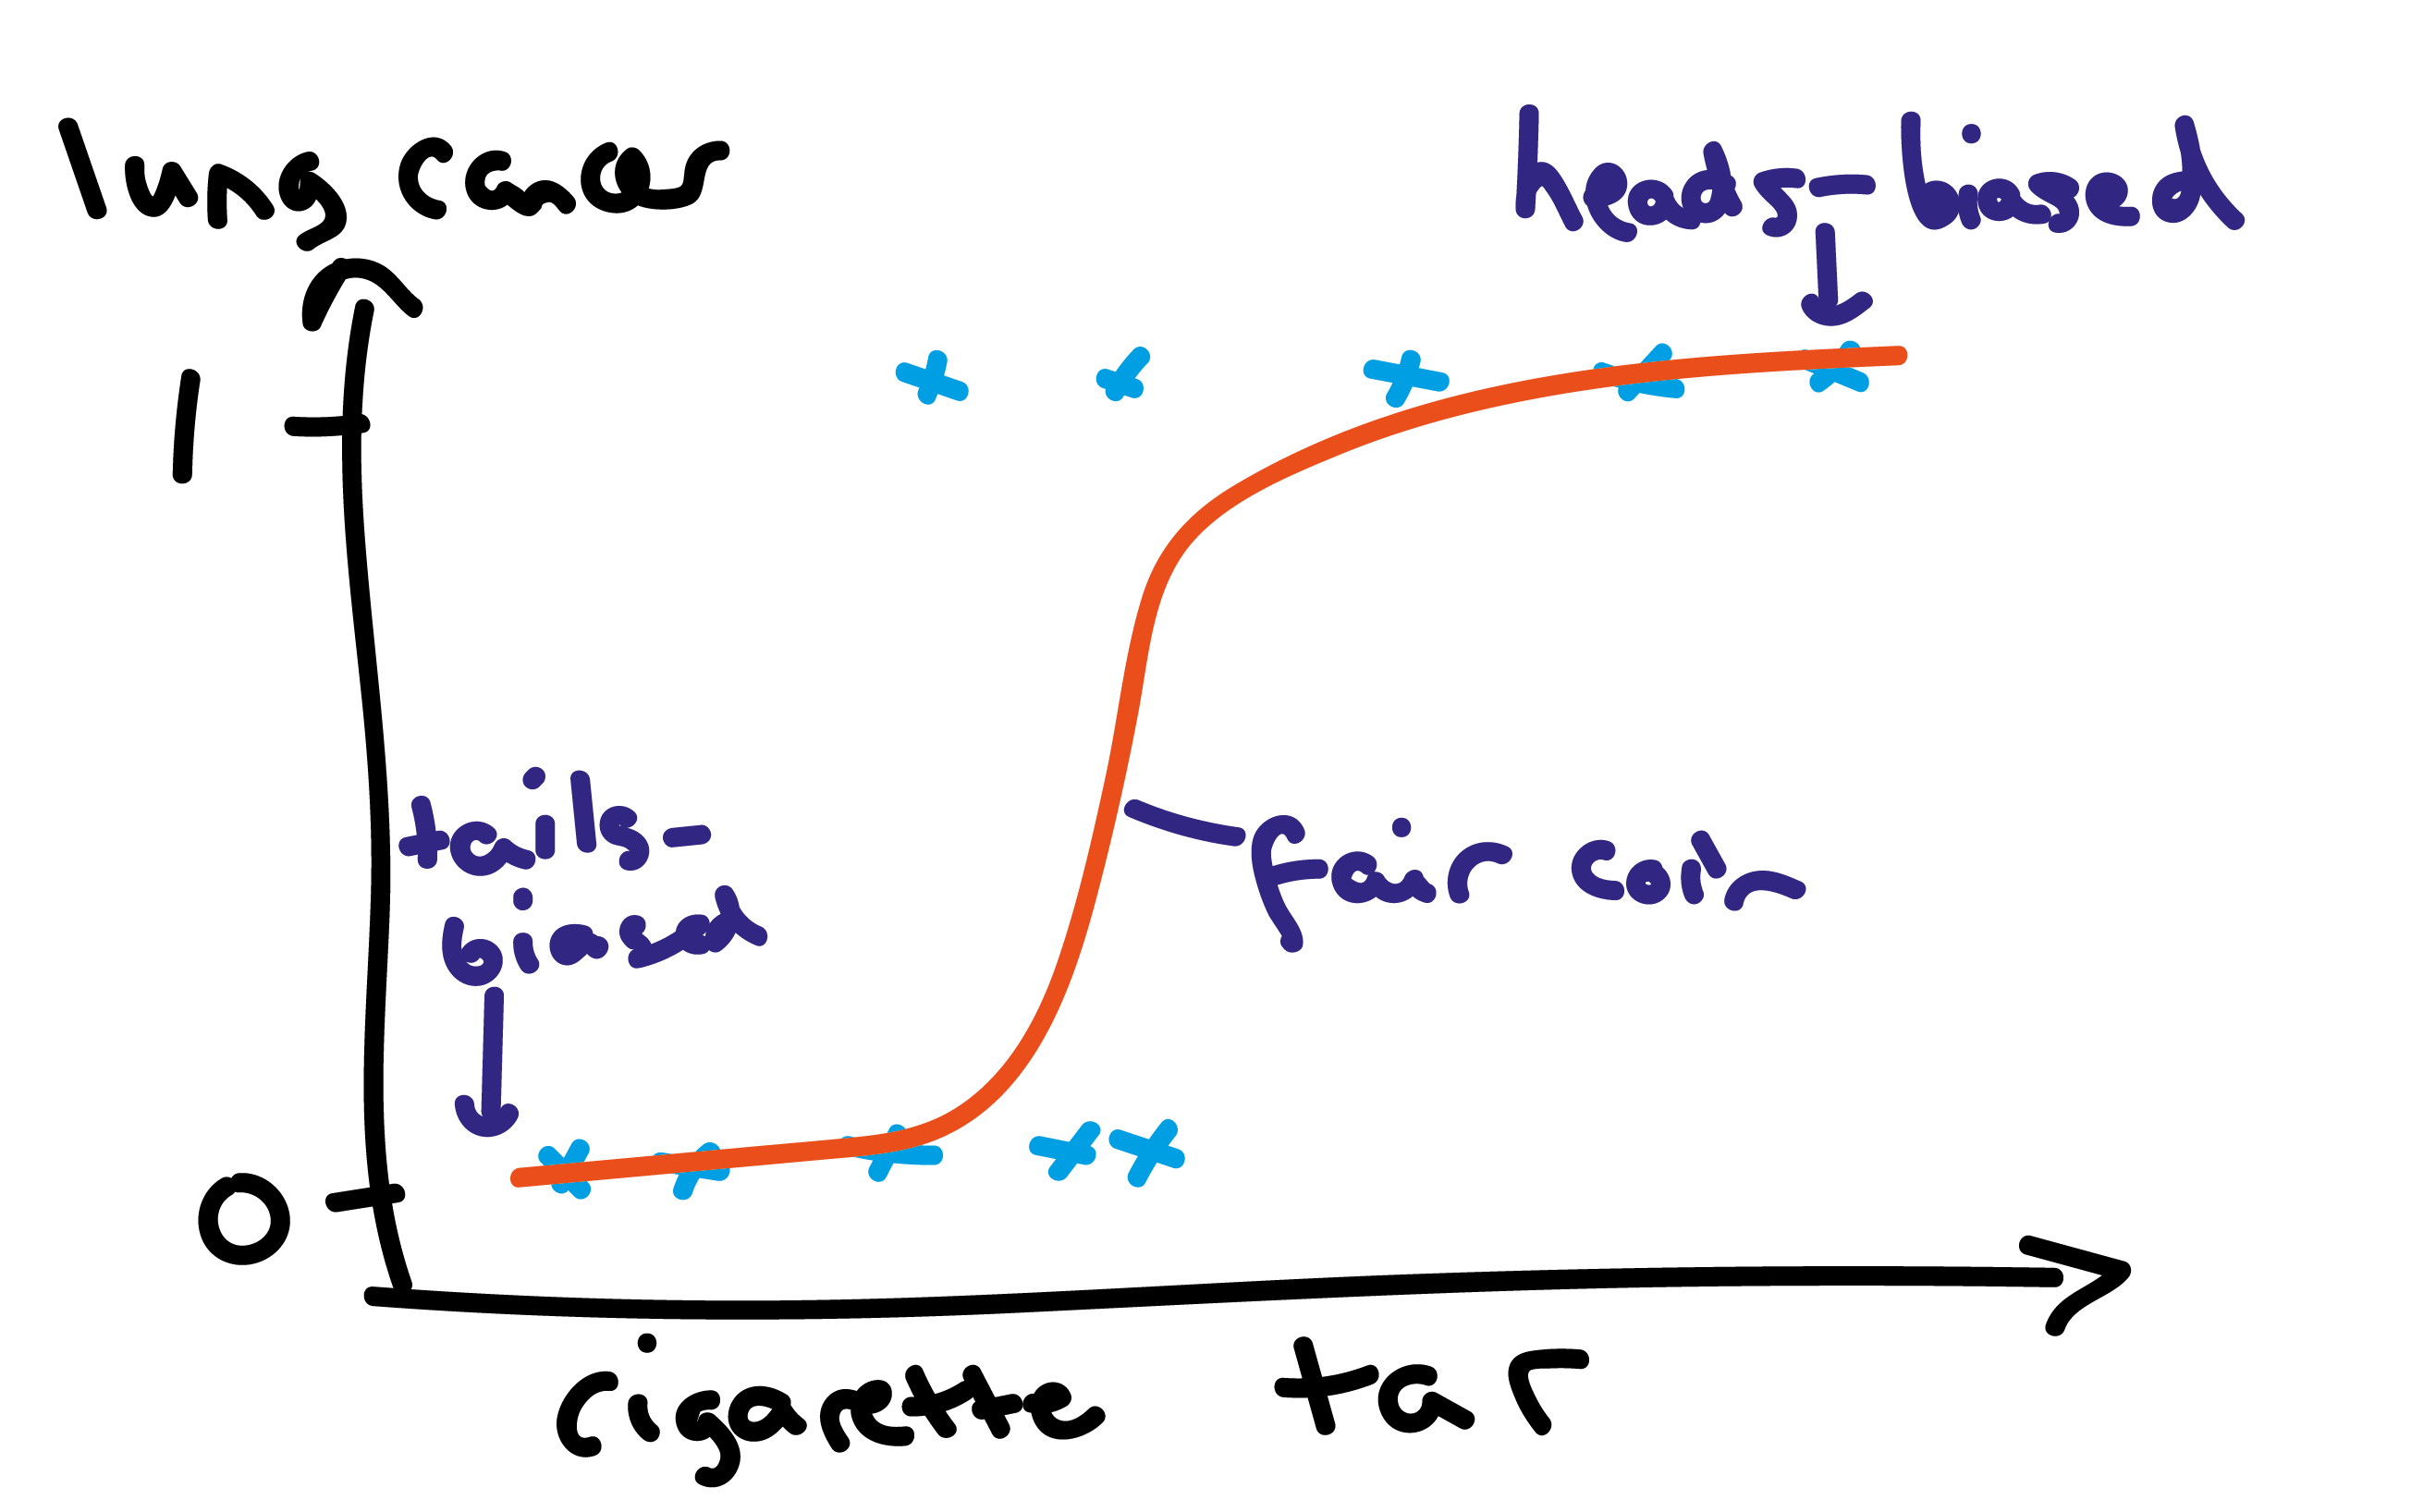 lung cancer
heads-biased
1
tails-
biased
fair coin
0
cigarette tar